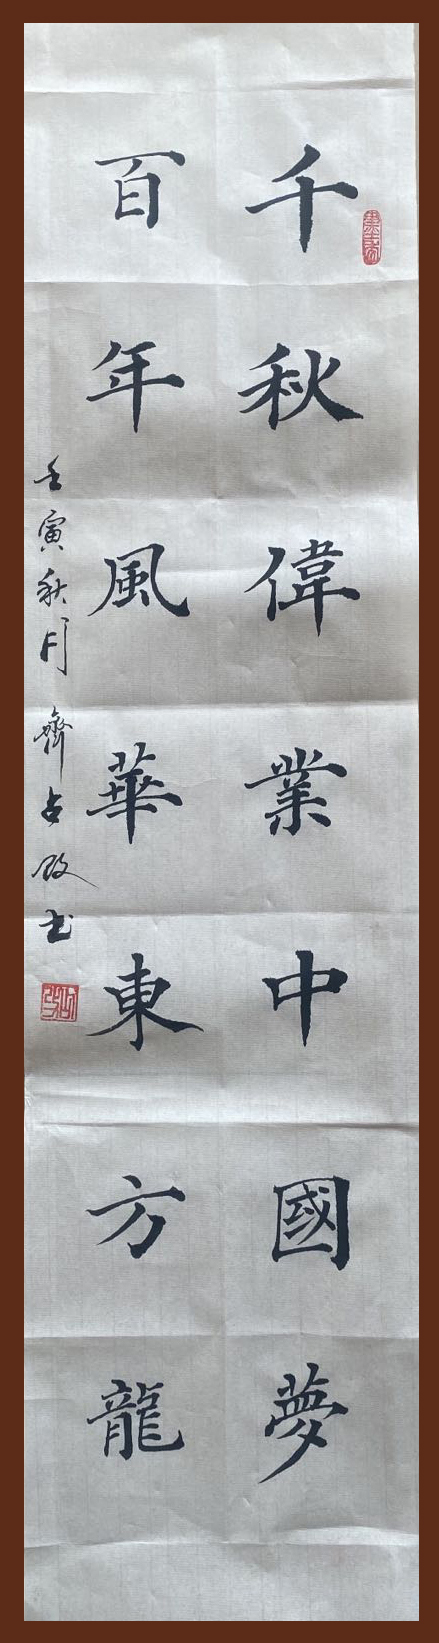 千秋偉業中國夢
百年風華東方龍
壬寅秋月 齊占改书